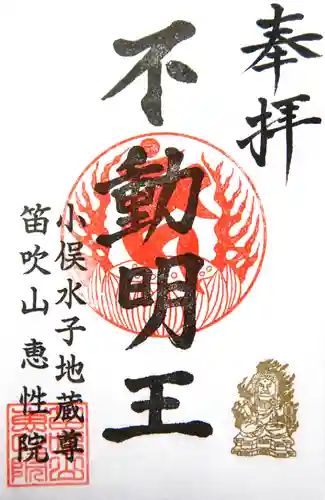 奉拝
不動明王
小俣水子地蔵尊
笛吹山恵性院